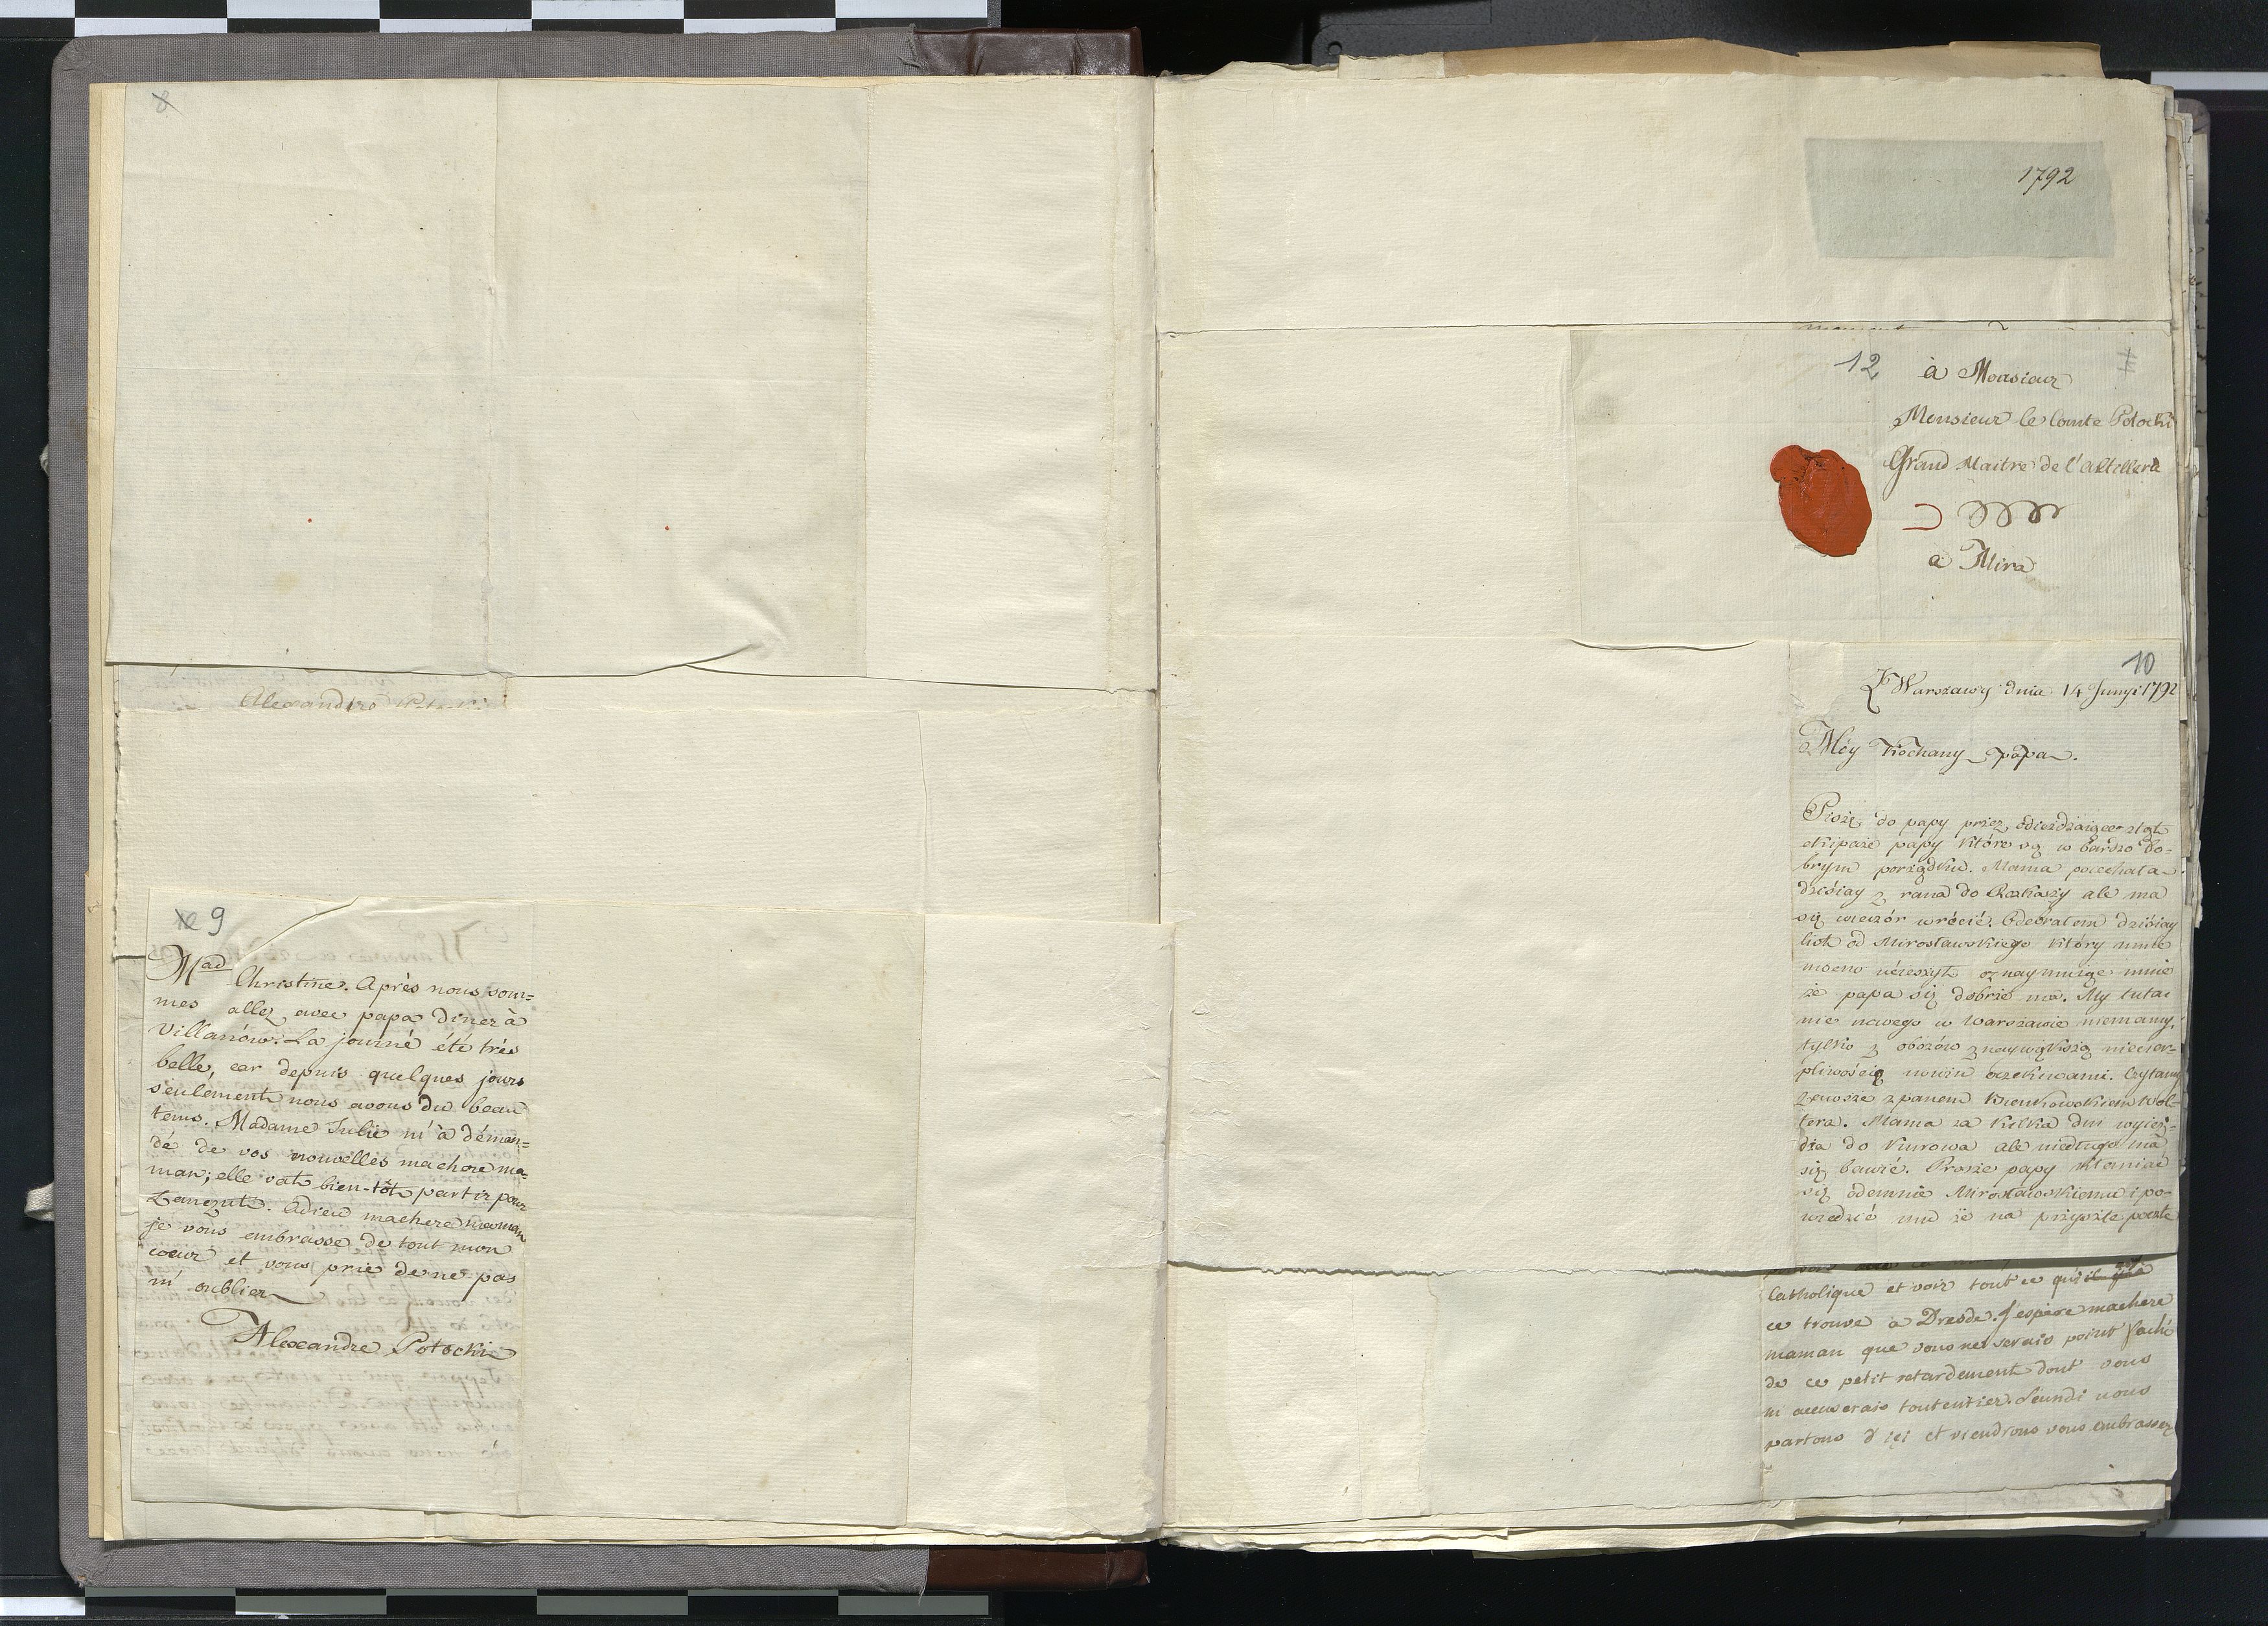 8
Alexandre Potocki
9
Mad Christine. Après nous som=
mes allez avec papa diner à
Villanów. La journé été trés
belle, car depuis quelques jours
seulement nous avons du beau
tems. Madame Julie m'à déman=
dé de vos nouvelles machere ma=
man; elle vat bien-tôt partir pour
Lanczut. Adieu machere maman
je vous embrasse de tout mon
coeur et vous prie de ne pas
m'oublier
Alexandre Potocki
1792
12
à Monsieur
Monsieur le Comte Potocki
Grand Maitre de l'artillerie
à Mira
10
Z Warszawy dnia 14 Junyi 1792
Móy Kochany papa.
Piszę do papy przez
ekipaże papy które są w barszo do=
brym porządku. Mama poiechała
dzisiay z rana do Rozkoszy ale ma
się wieczór wrócić. Odebrałem dzisiay
list od Mirosławskiego który mnie
mocno ucieszył oznaymuiąc mnie
że papa się dobrze ma. My tutai
nic nowego w Warszawie niemamy,
tylko z obozów znaywiększą niecier=
pliwością nowin oczekiwami. Czytamy
zawsze z panem Wol=
tera. Mama za kilka dni wyież=
dża do Kurowa ale niedługo ma
się bawić. Prosze papy kłaniać
się odemnie Mirosławskiemu i po=
wiedzić mu że na przyszłe poczte
Catholique et voir tout ce qu'il
ce trouve à Dresde. J'espère machere
maman que vous ne serais point faché
de ce petit retardement dont vous
m'accuserais toutentier. Leundi nous
partons d'içi et viendrons vous embrasser